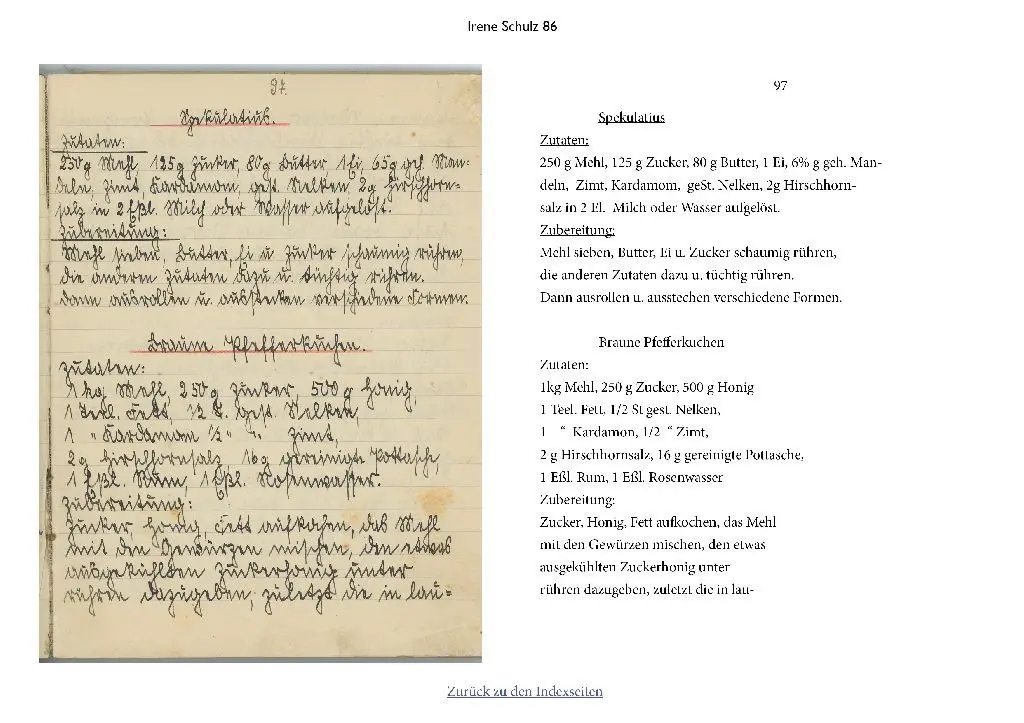 Irene Schulz 86
97.
Spekulatius.
Zutaten:
250 g Mehl, 125 g Zucker, 80 g Butter 1 Ei, 65 g geh. Man-
deln, Zimt, Kardamom, gest. Nelken, 2 g Hirschhorn-
salz in 2 Eßl. Milch oder Wasser aufgelöst.
Zubereitung:
Mehl sieben, Butter, Ei u Zucker schaumig rühren,
die anderen Zutaten dazu u. tüchtig rühren.
Dann ausrollen u. ausstecken verschiedene Formen.
Braune Pfefferkuchen.
Zutaten:
1 kg Mehl, 250 g Zucker, 500 g Honig,
1 Teel. Fett, 1/2 T. gest. Nelken,
1 " Kardamom 1/2 " " Zimt,
2 g Hirschhornsalz, 16 g gereinigte Pottasche,
1 Eßl. Rum, 1 Eßl. Rosenwasser.
Zubereitung:
Zucker, Honig, Fett aufkochen, das Mehl
mit den Gewürzen mischen, den etwas
ausgekühlten Zuckerhonig unter
rühren dazugeben, zuletzt die in lau-
97
Spekulatius
Zutaten:
250 g Mehl, 125 g Zucker, 80 g Butter, 1 Ei, 6% g geh. Man-
deln, Zimt, Kardamom, geSt. Nelken, 2g Hirschhorn-
salz in 2 El. Milch oder Wasser aufgelöst.
Zubereitung:
Mehl sieben, Butter, Ei u. Zucker schaumig rühren,
die anderen Zutaten dazu u. tüchtig rühren.
Dann ausrollen u. ausstechen verschiedene Formen.
Braune Pfefferkuchen
Zutaten:
1kg Mehl, 250 g Zucker, 500 g Honig
1 Teel. Fett, 1/2 St gest. Nelken,
1 “ Kardamon, 1/2 “ Zimt,
2 g Hirschhornsalz, 16 g gereinigte Pottasche,
1 Eßl. Rum, 1 Eßl. Rosenwasser
Zubereitung:
Zucker, Honig, Fett aufkochen, das Mehl
mit den Gewürzen mischen, den etwas
ausgekühlten Zuckerhonig unter
rühren dazugeben, zuletzt die in lau-
Zurück zu den Indexseiten